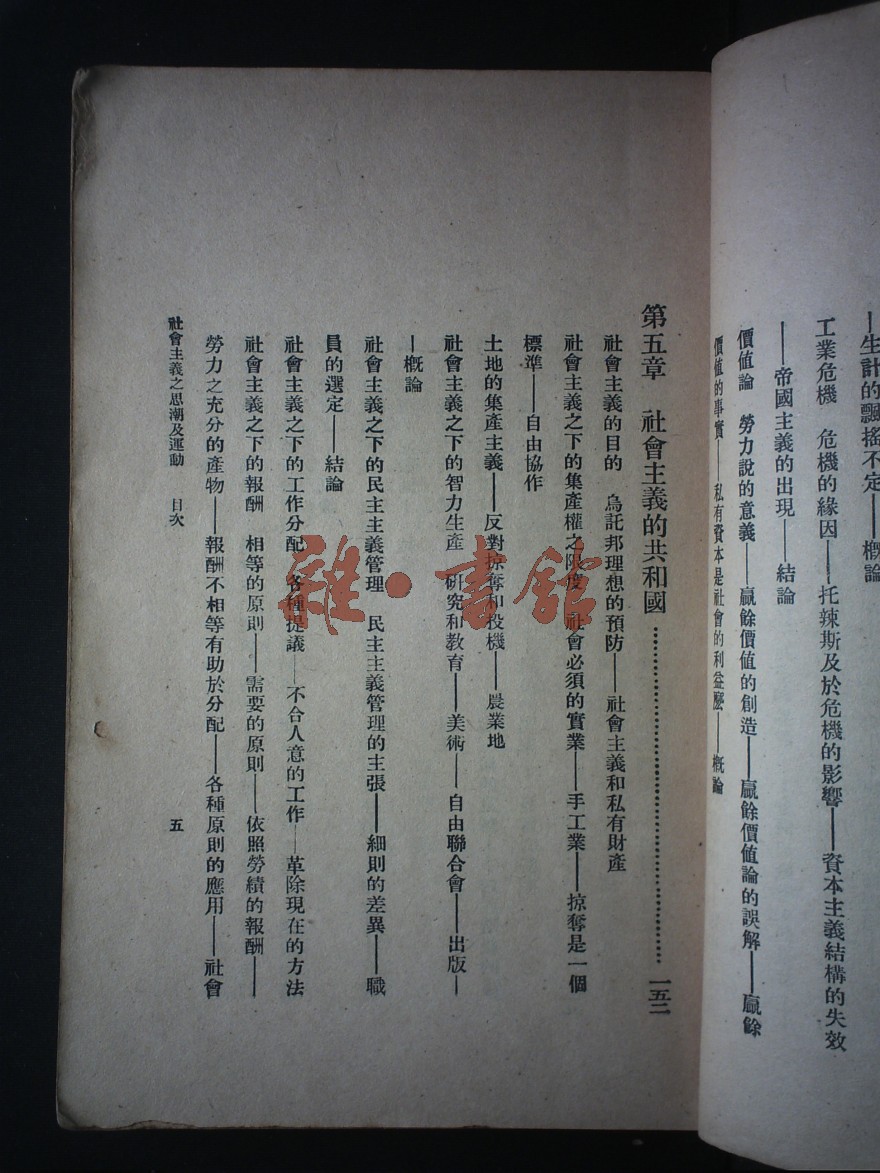 —生計的飄搖不定——概論
工業危機　危機的緣因——托辣斯及於危機的影響——資本主義結構的失效
——帝國主義的出現——結論
價值論　勞力說的意義——贏餘價值的創造——贏餘價值論的誤解——贏餘
價值的事實——私有資本是社會的利益麽——概論
第五章　社會主義的共和國…………………………一五二
社會主義的目的　烏託邦理想的預防——社會主義和私有財產
社會主義之下的集產權之限度　社會必須的實業——手工業——掠奪是一個
標準——自由協作
土地的集產主義——反對掠奪和投機——農業地
社會主義之下的智力生產　研究和教育——美術——自由聯合會——出版—
—概論
社會主義之下的民主主義管理　民主主義管理的主張——細則的差異——職
員的選定——結論
社會主義之下的工作分配　各種提議——不合人意的工作——革除現在的方法
社會主義之下的報酬　相等的原則——需要的原則——依照勞績的報酬——
勞力之充分的產物——報酬不相等有助於分配——各種原則的應用——社會
社會主義之思潮及運動　目次　五
雜·書館